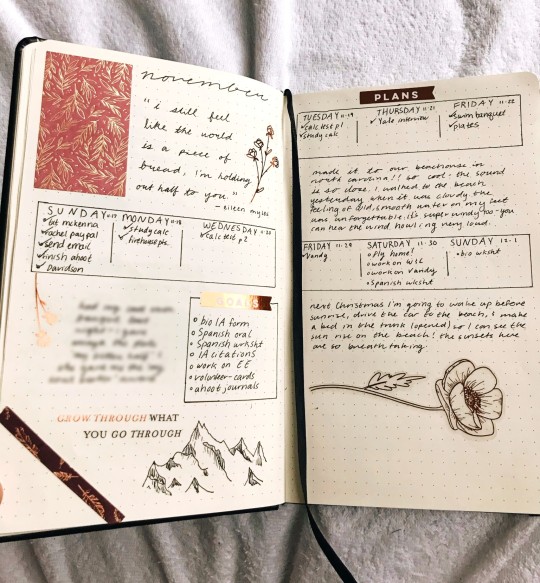 november
"i still feel
like the world
is a piece of
bread, i'm holding
out half to you"
- eileen myles
SUNDAY 11-17
eat mckenna
rachel paypal
send email
finish ahoot
davidson
MONDAY 11-18
study calc
WEDNESDAY 11-20
calc test p2
GOALS
bio IA form
Spanish oral
Spanish wrksht
IA citations
work on EE
volunteer cards
ahoot journals
GROW THROUGH WHAT
YOU GO THROUGH
PLANS
TUESDAY 11-19
calc test p1
study calc
THURSDAY 11-21
Yale interview
FRIDAY 11-22
swim banquet
plates
made it to our beachouse in
north carolina!! so cool. the sound
is so close. i walked to the beach
yesterday when it was cloudy. the
feeling of cold, smooth water on my feet
was unforgettable. it's super windy too - you
can hear the wind howling very loud.
FRIDAY 11-29
Vandy
SATURDAY 11-30
fly home!
work on WSL
work on Vandy
Spanish wksht
SUNDAY 12-1
bio wksht
next Christmas i'm going to wake up before
sunrise, drive the car to the beach, & make
a bed in the trunk (opened) so I can see the
sun rise on the beach! the sunsets here
are so breath taking